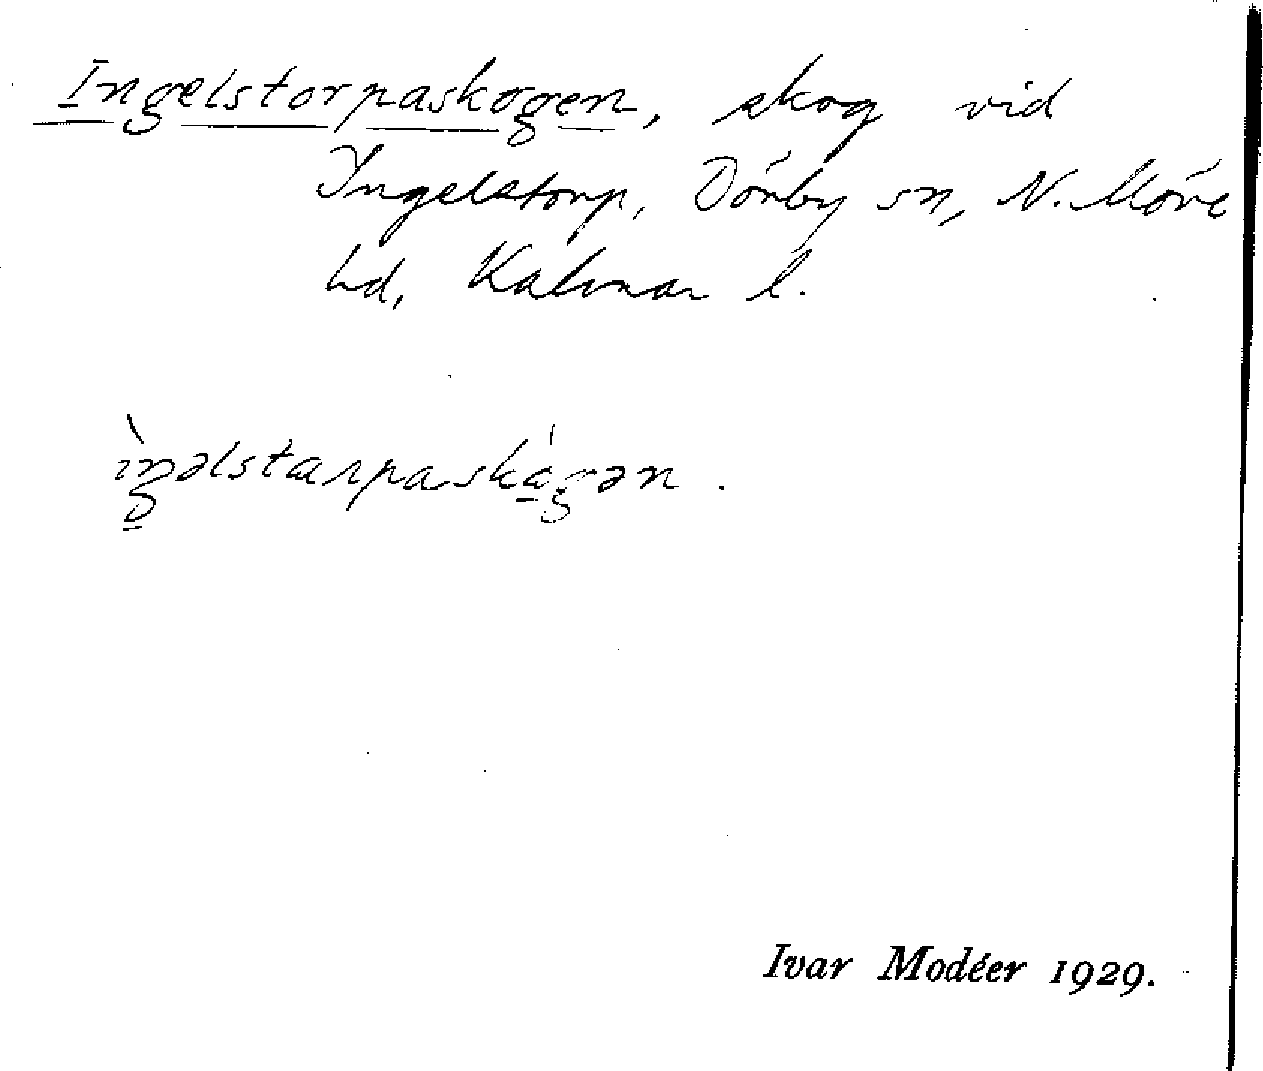 Ingelstorpaskogen, skog vid
Ingelstorp, Dörby sn, N. Möre
hd, Kalmar l.
ìŋəlstarpaskágən.
Ivar Modéer 1929.